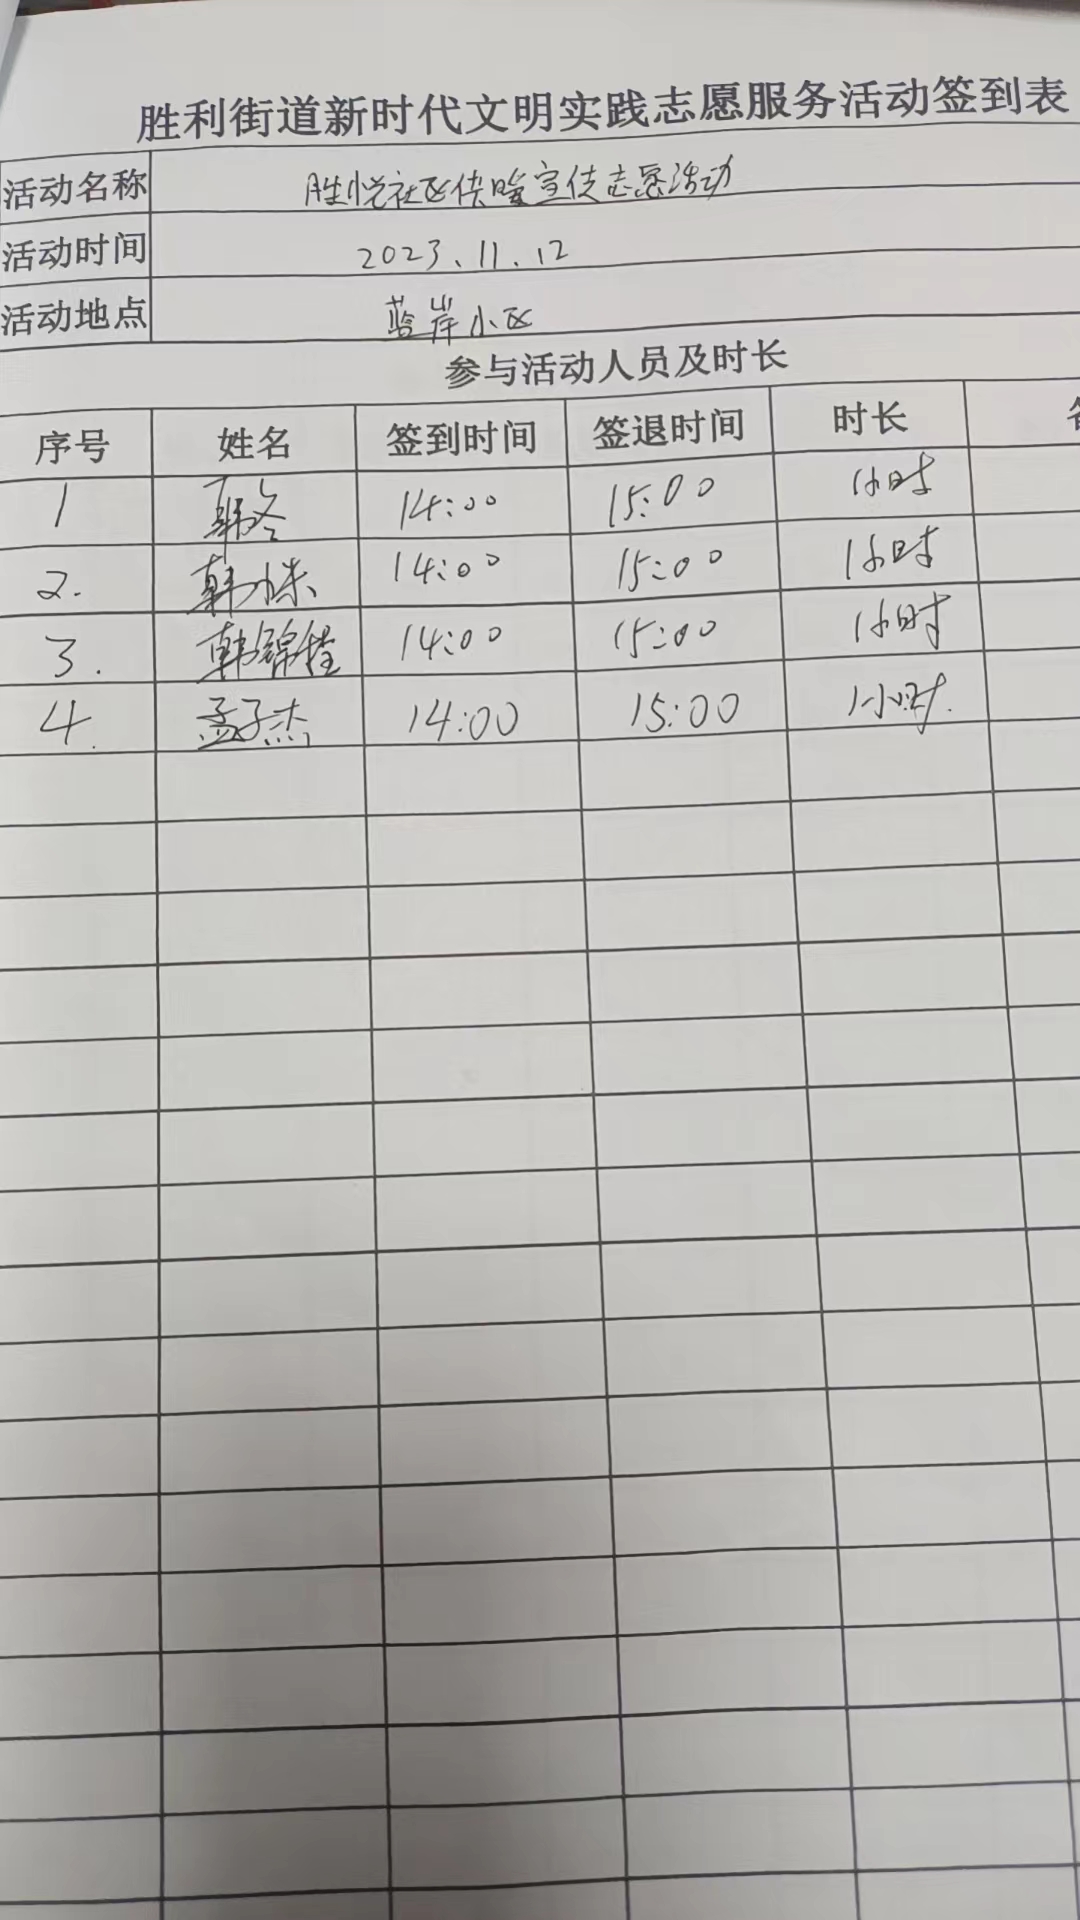 胜利街道新时代文明实践志愿服务活动签到表
活动名称 胜悦社区供暖宣传志愿活动
活动时间 2023.11.12
活动地点 蓝岸小区
参与活动人员及时长
序号 姓名 签到时间 签退时间 时长
1 韩冬 14:00 15:00 1小时
2. 韩 14:00 15:00 1小时
3. 韩锦程 14:00 15:00 1小时
4. 孟子杰 14:00 15:00 1小时.